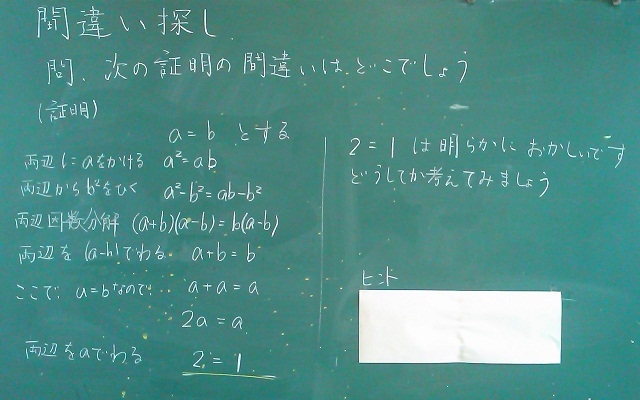 間違い探し
問、次の証明の間違いは、どこでしょう
(証明)
a = b とする
両辺にaをかける a² = ab
両辺からb²をひく a²-b² = ab-b²
両辺因数分解 (a+b)(a-b) = b(a-b)
両辺を(a-b)でわる a+b = b
ここで、a=bなので a+a = a
2a = a
両辺をaでわる 2 = 1
2 = 1 は明らかに おかしいです
どうしてか考えてみましょう
ヒント